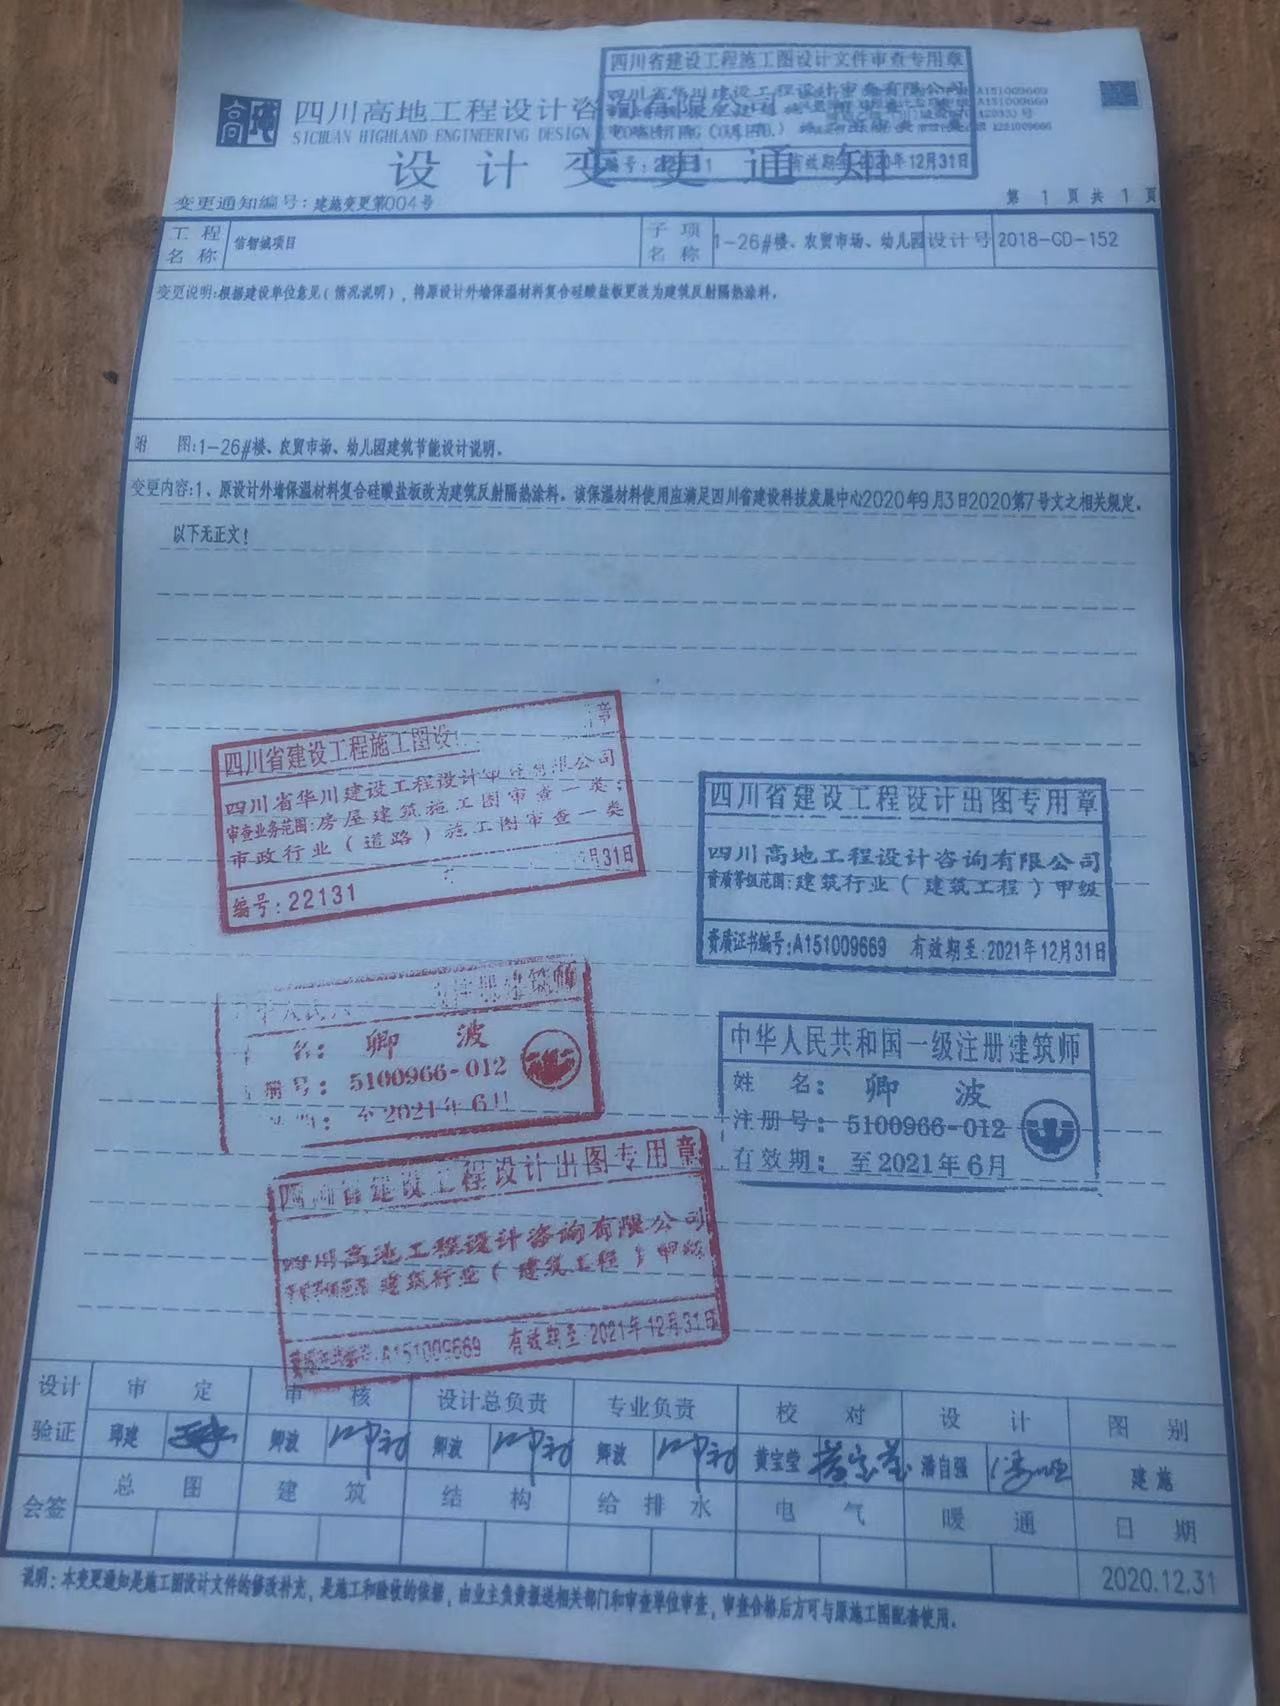 四川省建设工程施工图设计文件审查专用章
四川省华川建设工程设计审查有限公司
四川高地工程设计咨询有限公司
SICHUAN HIGHLAND ENGINEERING DESIGN
编号: 22131 有效期至2020年12月31日
设计变更通知
变更通知编号:建施变更第004号
第 1 页 共 1 页
工程名称 信智城项目 子项名称 1-26#楼、农贸市场、幼儿园 设计号 2018-GD-152
变更说明:根据建设单位意见(情况说明),将原设计外墙保温材料复合硅酸盐板更改为建筑反射隔热涂料。
附 图:1-26#楼、农贸市场、幼儿园建筑节能设计说明。
变更内容:1、原设计外墙保温材料复合硅酸盐板改为建筑反射隔热涂料。该保温材料使用应满足四川省建设科技发展中心2020年9月3日2020第7号文之相关规定。
以下无正文!
四川省建设工程施工图设 章
四川省华川建设工程设计审查有限公司
审查业务范围:房屋建筑施工图审查一类;
市政行业(道路)施工图审查一类
月31日
编号:22131
四川省建设工程设计出图专用章
四川高地工程设计咨询有限公司
资质等级范围:建筑行业(建筑工程)甲级
资质证书编号:A151009669 有效期至:2021年12月31日
注册建筑师
名: 卿 波
册号: 5100966-012
至2021年6月
中华人民共和国一级注册建筑师
姓 名: 卿 波
注册号: 5100966-012
有效期: 至2021年6月
四川省建设工程设计出图专用章
四川高地工程设计咨询有限公司
资质等级范围 建筑行业(建筑工程)甲级
资质证书编号:A151009669 有效期至:2021年12月31日
设计验证 审 定 审 核 设计总负责 专业负责 校 对 设 计 图 别
邱建 卿波 卿波 卿波 黄宝莹 黄宝莹 潘自强 建施
会签 总 图 建 筑 结 构 给 排 水 电 气 暖 通 日 期
2020.12.31
说明:本变更通知是施工图设计文件的修改补充,是施工和验收的依据,由业主负责报送相关部门和审查单位审查,审查合格后方可与原施工图配套使用。